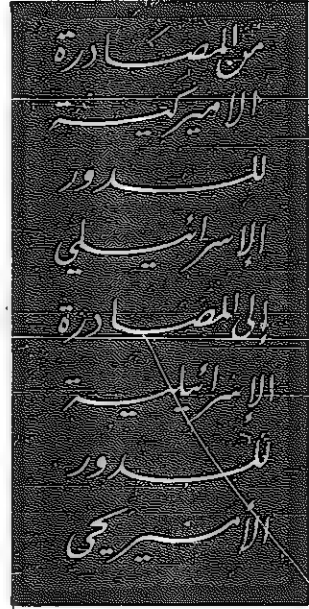 من المصادرة
الاميركية
للدور
الإسرائيلي
إلى المصادرة
الإسرائيلية
للدور
الأميركي